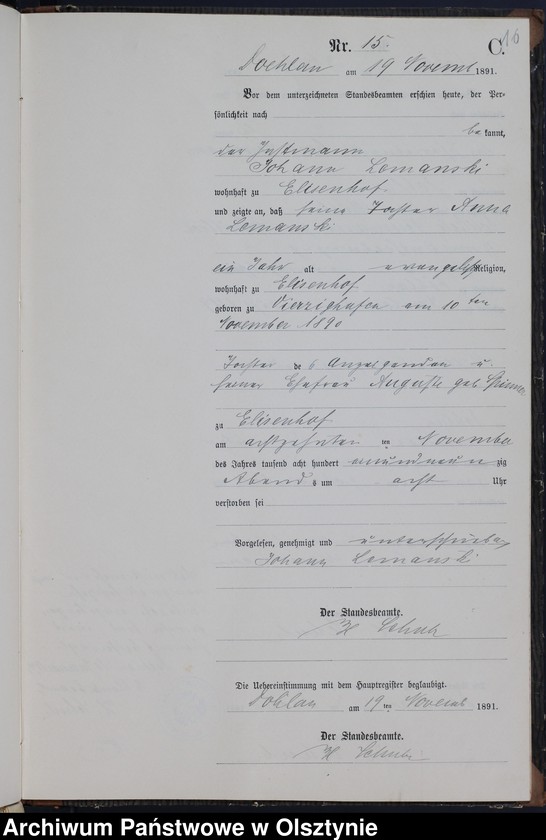 16
Nr. 15. C.
Doehlau am 19 Novemb 1891.
Vor dem unterzeichneten Standesbeamten erschien heute, der Per-
sönlichkeit nach
be kannt,
der Instmann
Johann Lomanski
wohnhaft zu Elisenhof
und zeigte an, daß seine Tochter Anna
Lomanski
ein Jahr alt evangelisch Religion,
wohnhaft zu Elisenhof
geboren zu Vierzighufen am 10 ten
November 1890
Tochter des Anzeigenden u.
seiner Ehefrau Auguste geb.
zu Elisenhof
am achtzehnten ten November
des Jahres tausend acht hundert einundneun zig
Abends um acht Uhr
verstorben sei
Vorgelesen, genehmigt und unterschrieben
Johann Lomanski
Der Standesbeamte.
Die Uebereinstimmung mit dem Hauptregister beglaubigt.
Doehlau am 19 ten Novemb 1891.
Der Standesbeamte.
Archiwum Państwowe w Olsztynie